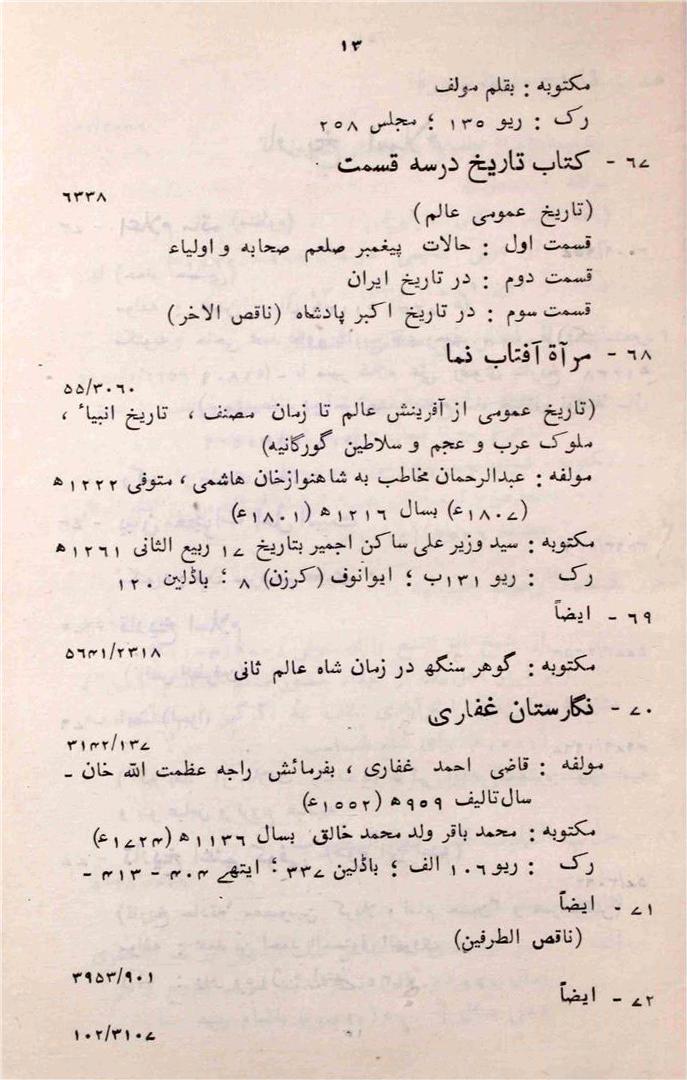 ۱۳
مکتوبه : بقلم مولف
رک : ریو ۱۳۵ ؛ مجلس ۲۵۸
۶۷ - کتاب تاریخ درسه قسمت
۶۳۳۸
(تاریخ عمومی عالم)
قسمت اول : حالات پیغمبر صلعم صحابه و اولیاء
قسمت دوم : در تاریخ ایران
قسمت سوم : در تاریخ اکبر پادشاه (ناقص الاخر)
۶۸ - مرآة آفتاب نما
۵۵/۳۰۶۰
(تاریخ عمومی از آفرینش عالم تا زمان مصنف ، تاریخ انبیاء ،
ملوک عرب و عجم و سلاطین گورگانیه)
مولفه : عبدالرحمان مخاطب به شاهنوازخان هاشمی ، متوفی ۱۲۲۲ ه
(۱۸۰۷ع) بسال ۱۲۱۶ه (۱۸۰۱ع)
مکتوبه : سید وزیر علی ساکن اجمیر بتاریخ ۱۷ ربیع الثانی ۱۲۶۱ ه
رک : ریو ۱۳۱ب ؛ ایوانوف (کرزن) ۸ ؛ باڈلین ۱۲۰
۶۹ - ایضاً
۵۶۴۱/۲۳۱۸
مکتوبه : گوهر سنگھ در زمان شاه عالم ثانی
۷۰ - نگارستان غفاری
۳۱۴۲/۱۳۷
مولفه : قاضی احمد غفاری ، بفرمائش راجه عظمت الله خان -
سال تالیف ۹۵۹ه (۱۵۵۲ع)
مکتوبه : محمد باقر ولد محمد خالق بسال ۱۱۳۶ه (۱۷۲۴ع)
رک : ریو ۱۰۶ الف ؛ باڈلین ۳۳۷ ؛ ایتھے ۴۰۴ - ۴۱۳ -
۷۱ - ایضاً
(ناقص الطرفین)
۳۹۵۳/۹۰۱
۷۲ - ایضاً
۱۰۲/۳۱۰۷